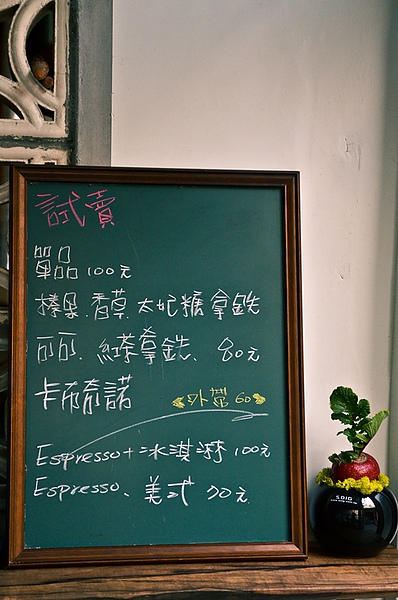 試賣
單品 100元
榛果.香草.太妃糖拿鐵
可可、紅茶拿鐵、80元
卡布希諾
外帶60
Espresso+冰淇淋 100元
Espresso、美式 70元
SDIG